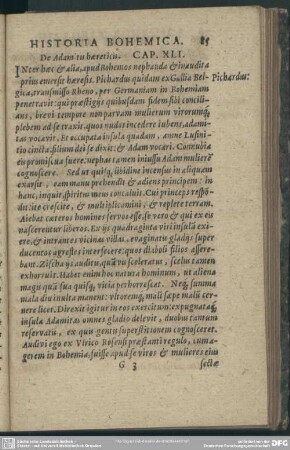 HISTORIA BOHEMICA. 85
De Adamitis hæreticis. CAP. XLI.
INter hæc & alia, apud Bohemos nephanda & inaudita
prius emersit hæresis. Pichardus quidam ex Gallia Bel-
Pichardus:
gica, transmisso Rheno, per Germaniam in Bohemiam
penetravit: qui præstigijs quibusdam fidem sibi concili-
ans, brevi tempore non parvam mulierum virorumq;
plebem ad se traxit, quos nudos incedere iubens, adami-
tas vocavit. Et occupata insula quadam, amne Lusini-
tio cincta, filium dei se dixit: & Adam vocari. Connubia
eis promiscua fuere: nephas tamen iniussu Adam mulierē
cognoscere. Sed ut quisq; libidine incensus in aliquam
exarsit, eam manu prehendit & adiens principem: in
hanc, inquit, spiritus meus concaluit. Cui princeps respō-
det: ite crescite, & multiplicamini, & replete terram.
Aiebat cæteros homines servos esse, se vero & qui ex eis
nascerentur liberos. Ex ijs quadraginta viri insula exi-
ere, & intrantes vicinas villas, evaginatis gladijs super
ducentos agrestes interfecere: quos diaboli filios assere-
bant. Zischa ijs auditis, quāvis sceleratus, scelus tamen
exhorruit. Habet enim hoc natura hominum, ut aliena
magis quā sua quisq; vitia perhorrescat. Neq; summa
mala diu inulta manent: vltoremq; mali sæpe malū cer-
nere licet. Direxit igitur in eos exercitum: expugnataq;
insula Adamitas omnes gladio delevit, duobus tantum
reservatis, ex quis gentis superstitionem cognosceret.
Audivi ego ex Vlrico Rosensi præstanti regulo, cum a-
gerem in Bohemia, fuisse apud se viros & mulieres eius
G 3 sectæ